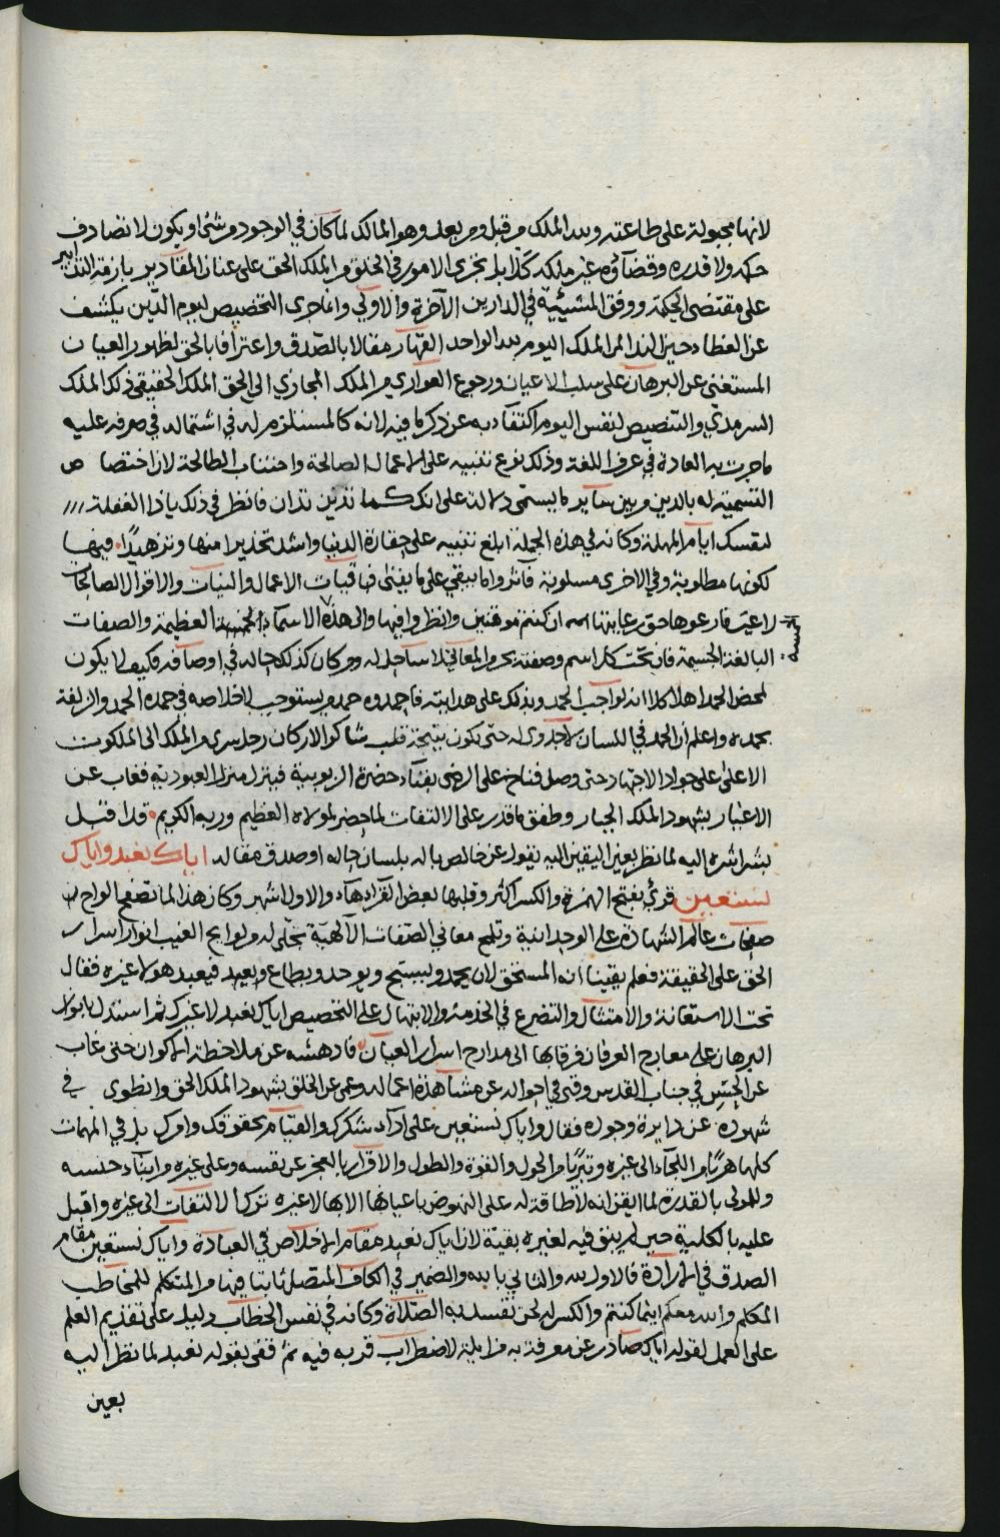 لانها مجبولة على طاعته ولله الملك من قبل ومن بعد وهو المالك لما كان في الوجود من شئ او يكون لا تصادف
حكمه ولا قدره وقضآؤه غير ملكه كلا بل تجرى الامور في الخلق من الملك الحق على عنان المقادير بازمة التدبير
على مقتضى الحكمة ووفق المشيئية في الدارين الآخرة والاولى وانما جرى التخصيص ليوم الدين يكشف
عن الغطاء حين النداء لمن الملك اليوم لله الواحد القهار مقالا بالصدق واعترافا بالحق لظهور العيان
المستغنى عن البرهان على سلب الاعيان ورجوع العوارى من الملك المجازي الى الحق الملك الحقيقي ذلك الملك
السرمدي والتنصيص لنفس اليوم اكتفآء به عن ذكر ما فيه لانه كالمستلزم له في اشتماله في صرفه عليه
ما جرت به العادة في عرف اللغة وذلك نوع تنبيه على الاعمال الصالحة واجتناب الطالحة لان اختصاص
التسمية له بالدين من بين ساير ما يستمى دلالة على انك كما تدين تدان فانظر في ذلك يا ذا الغفلة
لنفسك ايام المهلة وكانه في هذه الجملة ابلغ تنبيه على حقارة الدنيا واشد تحذيرا منها وتزهيدا فيها
لكونها مطلوبة وفي الاخرى مسلوبة فآثروا ما يبقى على ما يفنى فباقيات الاعمال والنيات والاقوال الصالحات
لا غير فارعوها حق رعايتها ان كنتم موقنين وانظروا فيها والى هذه الاسمآء الخمسة العظيمة والصفات
خمسة
البالغة الجسيمة فان تحت كل اسم وصفة بحر من المعاني لا ساحل له ومن كان كذلك حاله في اوصافه فكيف لا يكون
لمحض الحمد اهلا كلا انه لواجب الحمد وبذلك على هدايته فاحمدوه حمد من يستوجب الاخلاصه في حمده الحمد والزلفة
بحمده واعلم أن الحمد في اللسان لا جدوى له حتى يكون نتيجة قلب شاكر الاركان رحل سرى من الملك الى الملكوت
الاعلى على جواد الاجتهاد حتى وصل فناخ على الرضى بفنآء حضرة الربوبية فينزل منزل العبودية فغاب عن
الاغيار بشهود الملك الجبار وطفق ما قدر على الالتفات لما حضر لمولاه العظيم وربه الكريم قد اقبل
بشراشره اليه لما نظر بعين اليقين اليه يقول عن خالص باله بلسان حاله او صدق مقاله اياك نعبد واياك
نستعين قرئ بفتح الهمزة والكسر اكثر وقلبها بعض القراء هآء والاول اشهر وكان هذا لما تصفح الواح من
صفحات عالم الشهادة على الوجدانية وتلمح معاني الصفات الآلهية تجلى له ولوايح الغيب انوار اسرار
الحق على الحقيقة فعلم يقينا انه المستحق لان يحمد ويسبح ويوحد ويطاع ويعبد فيعبد هو لا غيره فقال
تحت الاستعانة والامتثال والتضرع في الخدمة والابتهال على التخصيص اياك نعبد لا غيرك ثم استدل بانوار
البرهان على معارج العرفان فرقا بها الى مدارج اسرار العيان فادهشه عن ملاحظة الاكوان حتى غاب
عن الحس في جناب القدس وفنى في احواله عن مشاهدة اعماله وعمى عن الخلق بشهود الملك الحق وانطوى في
شهوده عن دايرة وجوده فقال واياك نستعين على ادآء شكرك والقيام بحقوقك وامرك بل في المهمات
كلها هربا من اللجآء الى غيره وتبريا من الحول والقوة والطول والاقرار بالعجز عن نفسه وعلى غيره من ابنآء جنسه
وللمولى بالقدرة لما ايقن انه لا طاقة له على النهوض باعبائها الا بها لا غيره تركا لالتفات الى غيره واقبل
عليه بالكلية حين لم يبق فيه لغيره بقية لان اياك نعبد مقام الاخلاص في العبادة واياك نستعين مقام
الصدق في الارادة فالاول لله والثاني بالله والضمير في الكاف المتصل ثابتا فيها من المتكلم للمخاطب
المكلم والله معكم اينما كنتم والكسر لحن تفسد به الصلاة وكانه في نفس الخطاب دليل على تقديم العلم
على العمل لقوله اياك صادر عن معرفة به مزايلة لاضطراب قربه فيه ثم قفى بقوله نعبد لما نظر اليه
بعين